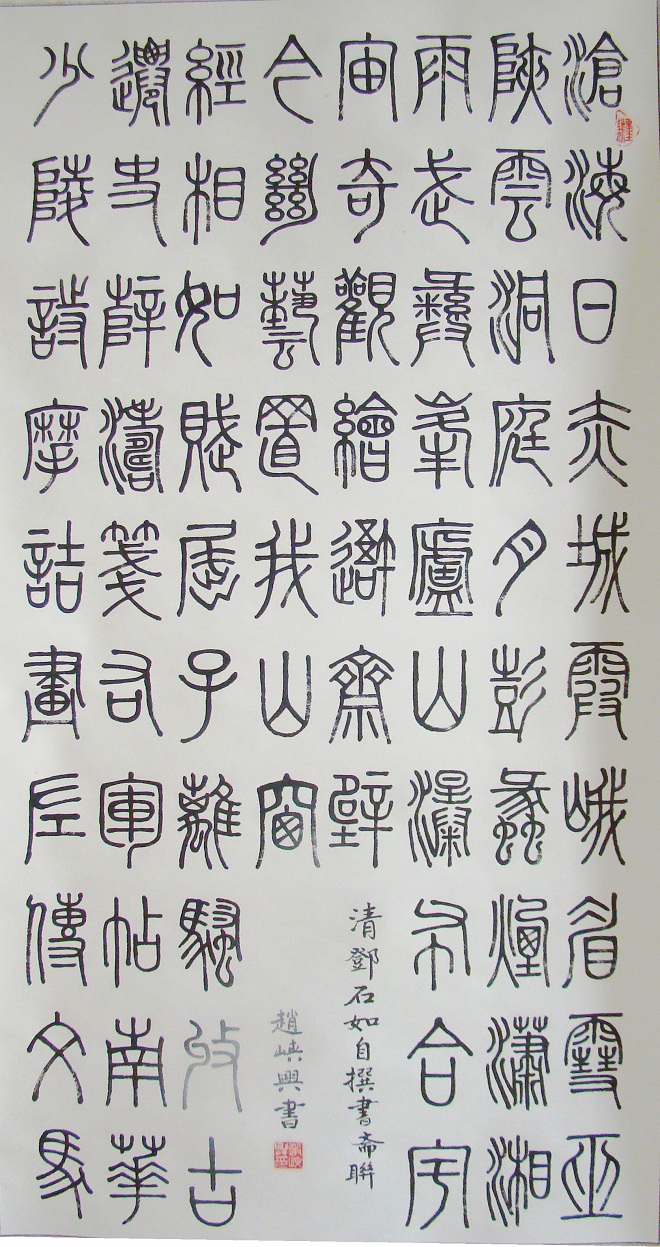 滄海日赤城霞峨眉雪巫
陜雲洞庭月彭蠡煙瀟湘
雨武彝峯廬山瀑布合宇
宙奇觀繪吾齋壁
清鄧石如自撰書齋聯
少陵詩摩詰畫左傳文馬
遷史薛濤箋右軍帖南華
經相如賦屈子離騷收古
今絕藝置我山窗
趙峽興書